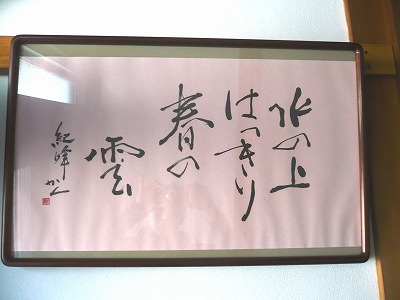 水の上
はっきり
春の
雲
紀峰かく